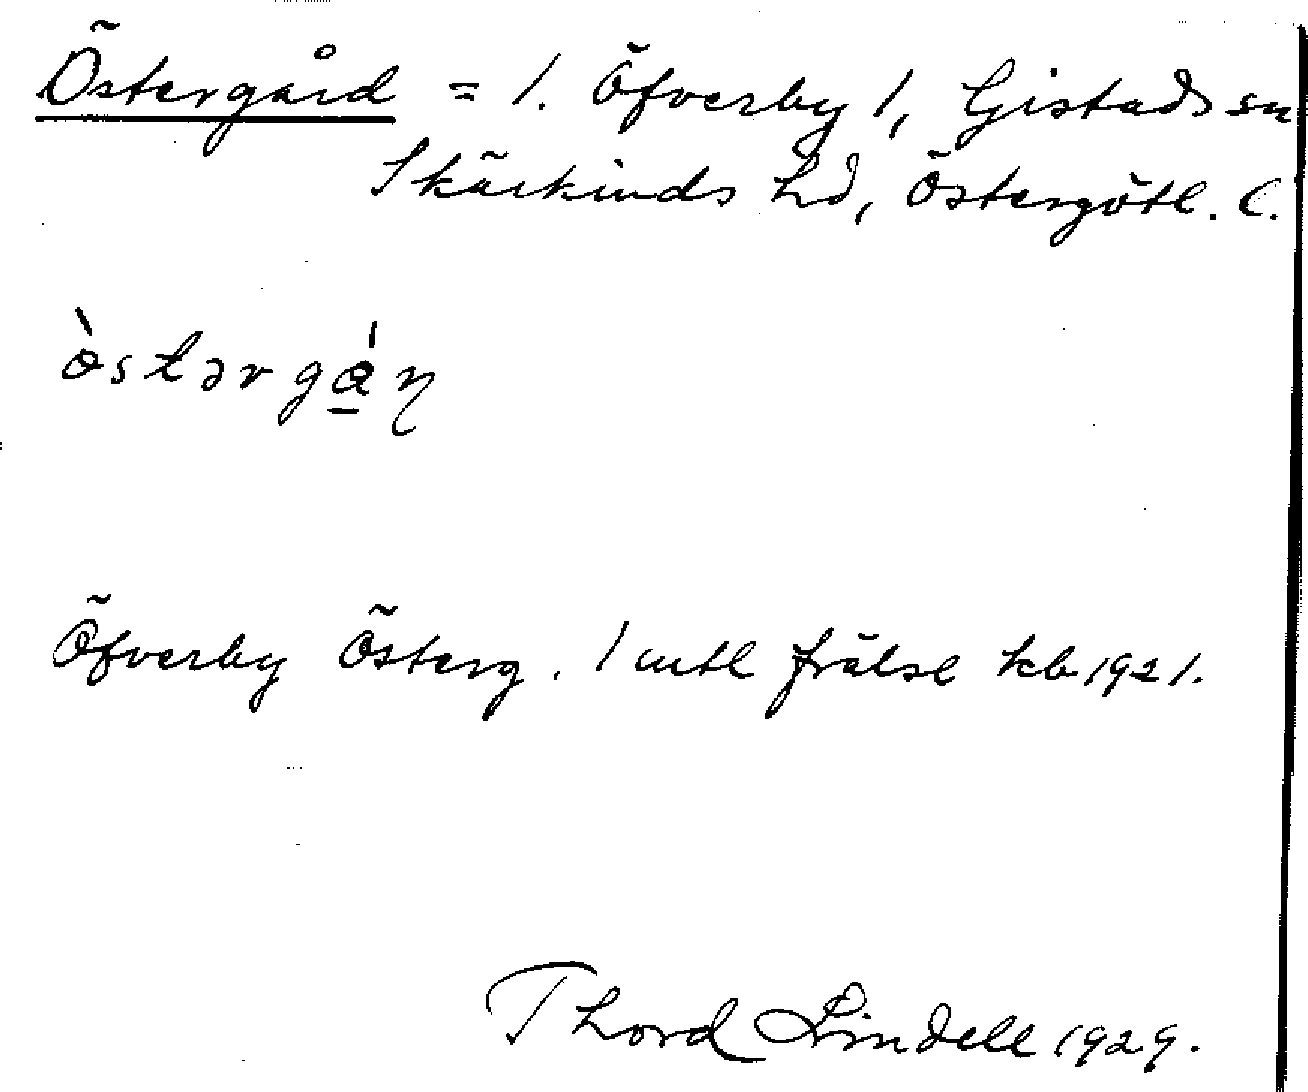 Östergård = 1. Öfverby 1, Gistads sn
Skärkinds hd, Östergötl. l.
òstərgá̱ŋ
Öfverby Österg. 1 mtl frälse kb 1921.
Thord Lindell 1929.